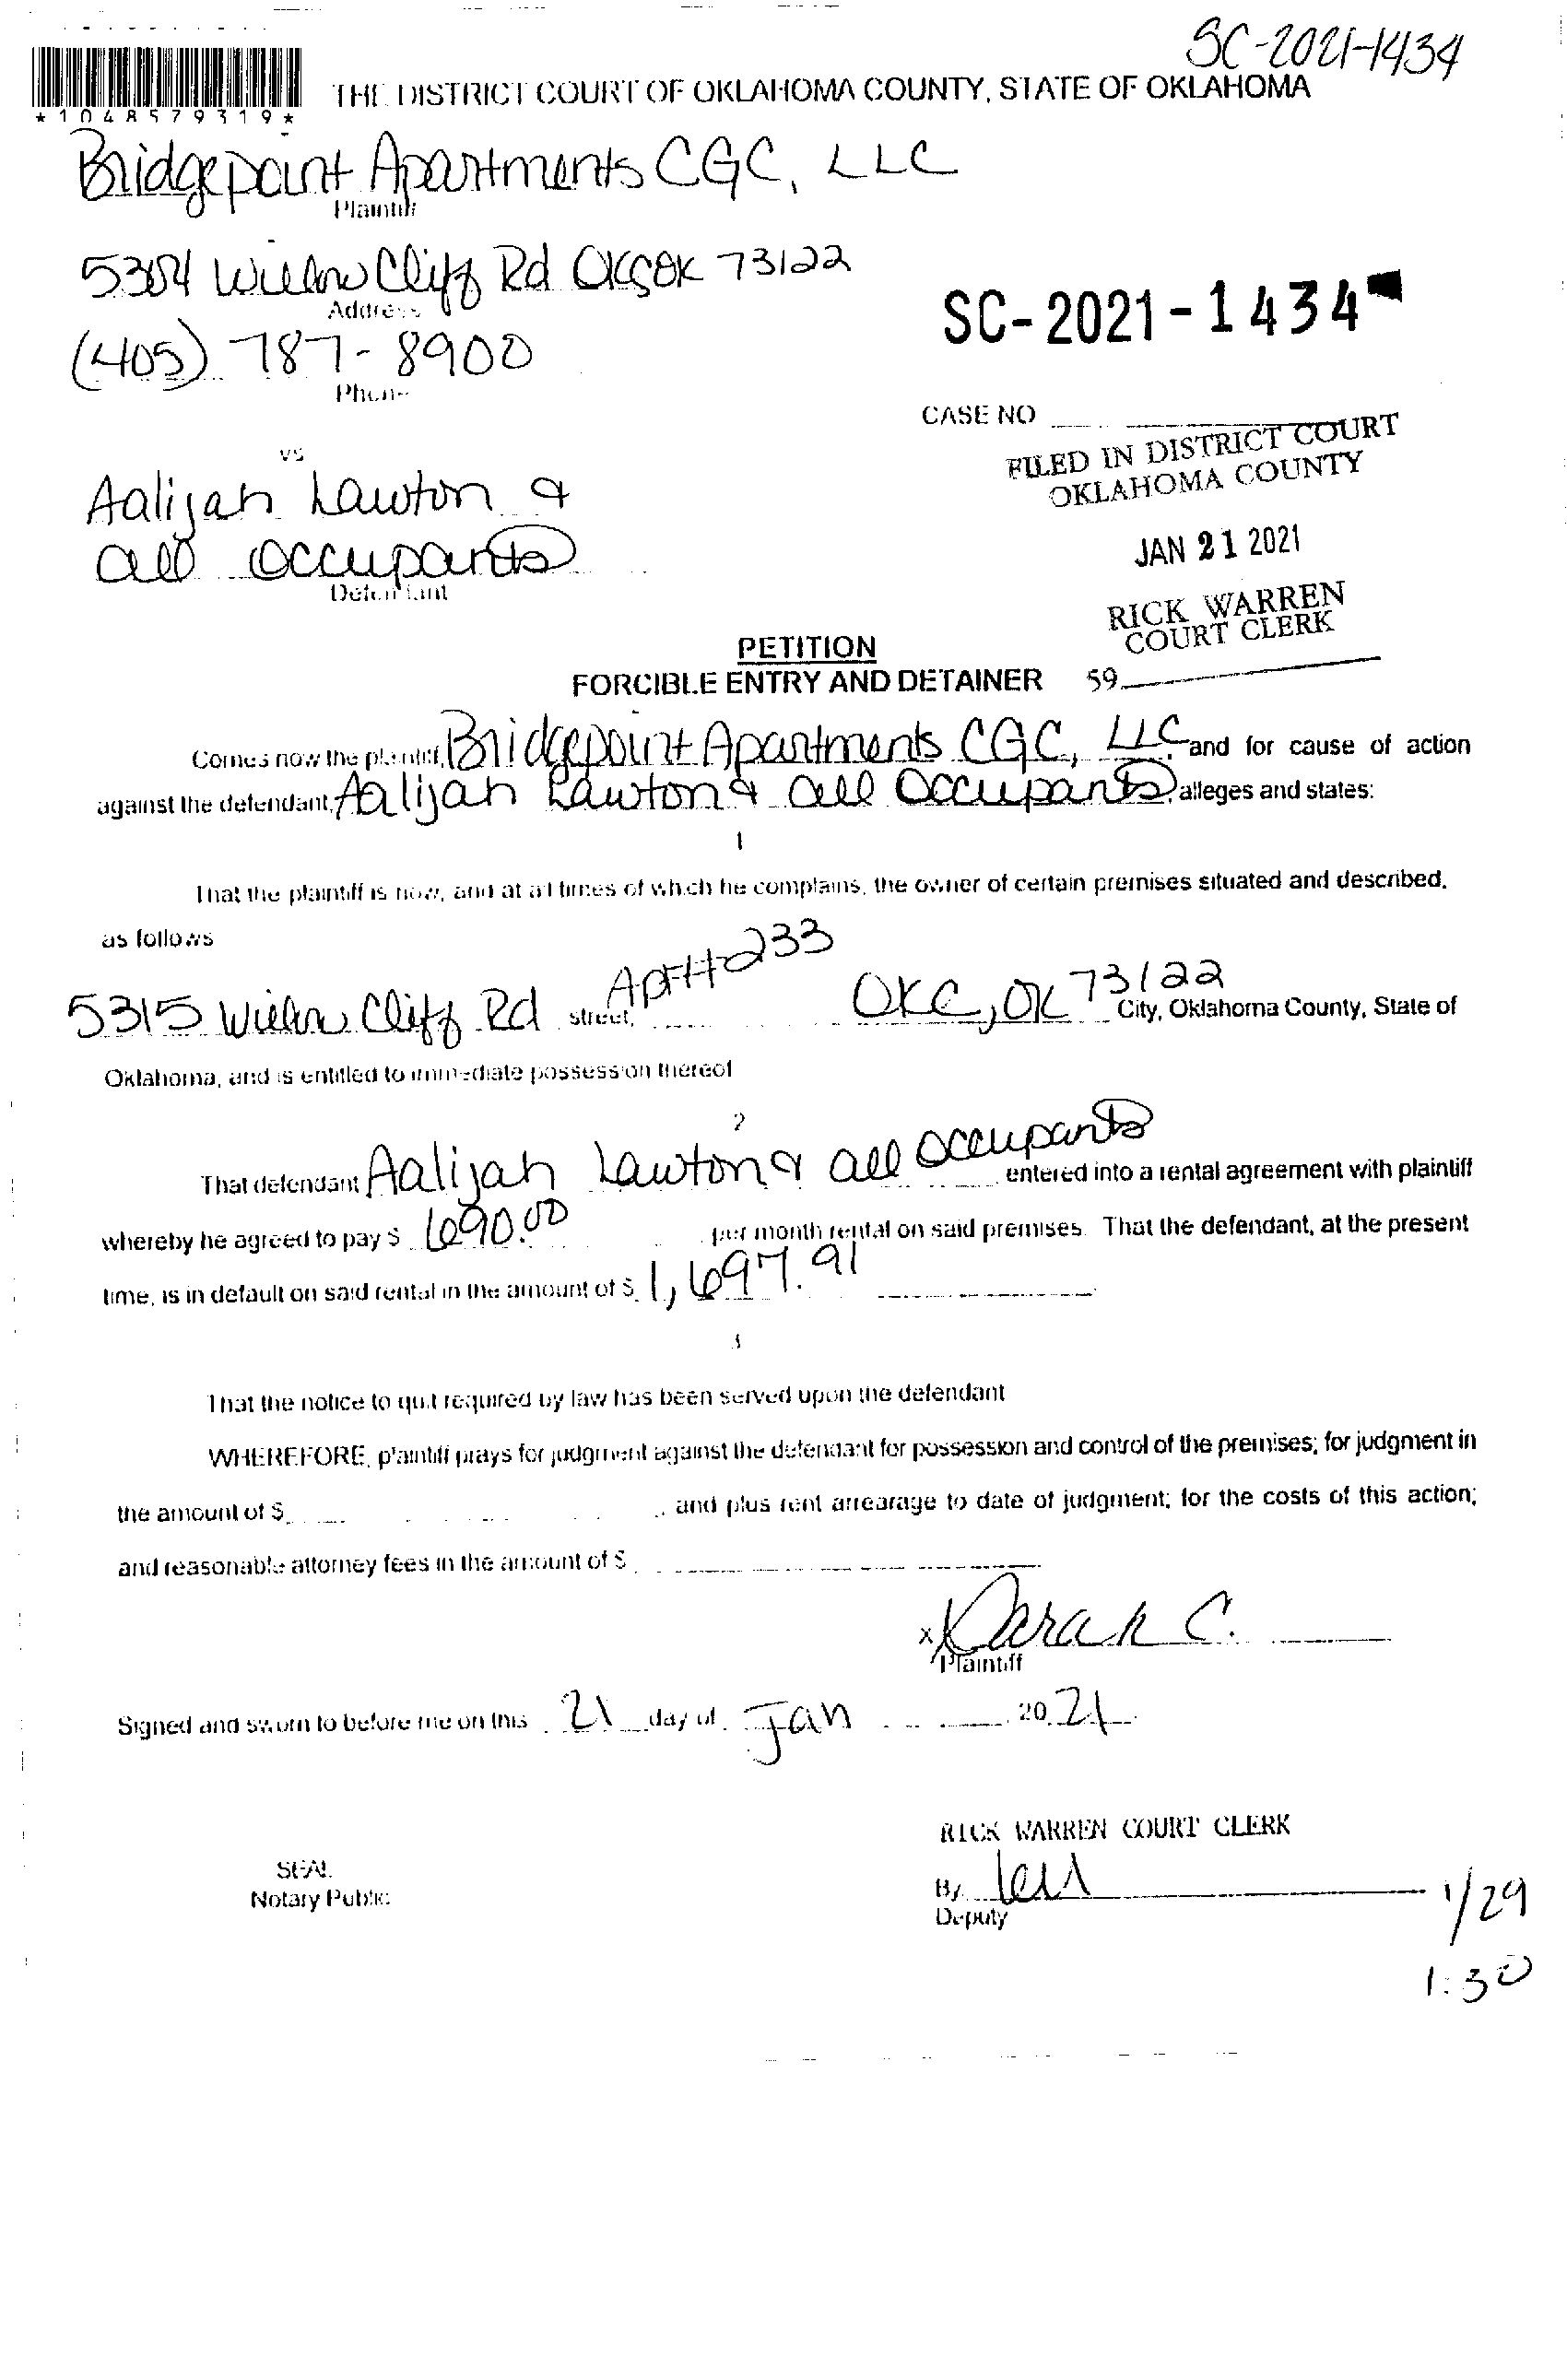 SC-2021-1434
*1048579319*
THE DISTRICT COURT OF OKLAHOMA COUNTY, STATE OF OKLAHOMA
Bridgepoint Apartments CGC, LLC
Plaintiff
Willow Cliff Rd OKC OK 73122
Address
(405) 787-8900
Phone
SC-2021-1434
CASE NO
FILED IN DISTRICT COURT
OKLAHOMA COUNTY
JAN 21 2021
RICK WARREN
COURT CLERK
59
vs
Aalijah Lawton &
all occupants
Defendant
PETITION
FORCIBLE ENTRY AND DETAINER
Comes now the plaintiff, Bridgepoint Apartments CGC, LLC and for cause of action
against the defendant, Aalijah Lawton & all Occupants, alleges and states:
1
That the plaintiff is now, and at all times of which he complains, the owner of certain premises situated and described,
as follows
5315 Willow Cliff Rd street, Apt# 233 OKC, OK 73122 City, Oklahoma County, State of
Oklahoma, and is entitled to immediate possession thereof
2
That defendant Aalijah Lawton & all occupants entered into a rental agreement with plaintiff
whereby he agreed to pay $ 690.00 per month rental on said premises. That the defendant, at the present
time, is in default on said rental in the amount of $ 1,697.91
3
That the notice to quit required by law has been served upon the defendant
WHEREFORE, plaintiff prays for judgment against the defendant for possession and control of the premises; for judgment in
the amount of $ , and plus rent arrearage to date of judgment; for the costs of this action;
and reasonable attorney fees in the amount of $
x Karah C.
Plaintiff
Signed and sworn to before me on this 21 day of Jan 20 21
RICK WARREN COURT CLERK
SEAL
Notary Public
By
Deputy
1/29
1:30